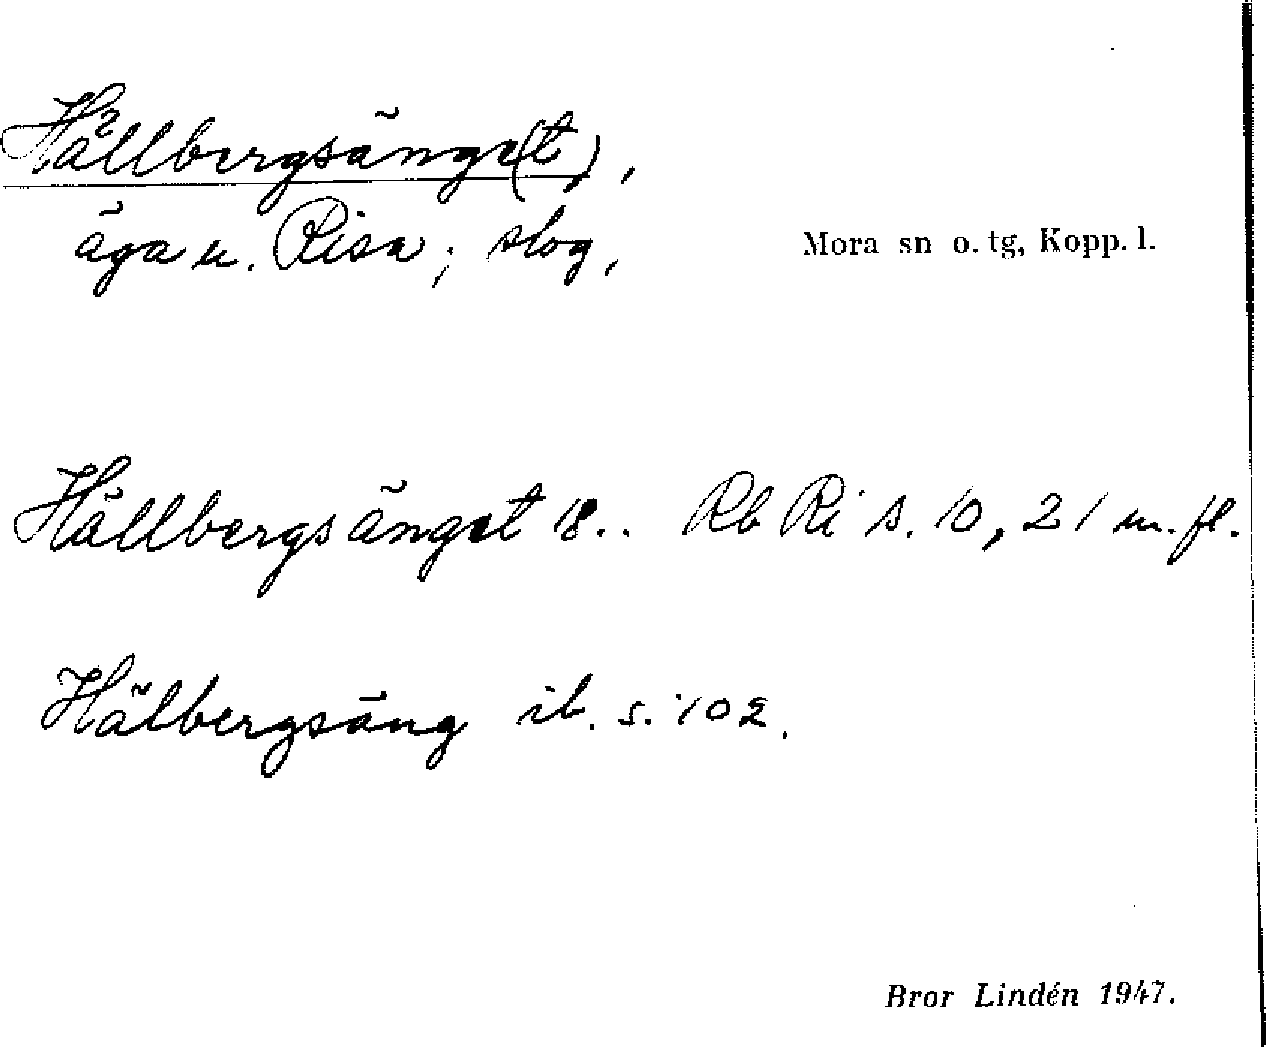 Hållbergsänge(t),
äga u. Risa; slog,
Mora sn o. tg, Kopp. l.
Hållbergsänget 18.. Rb Ri s. 10, 21 m. fl.
Hålbergsäng ib. s. 102.
Bror Lindén 1947.